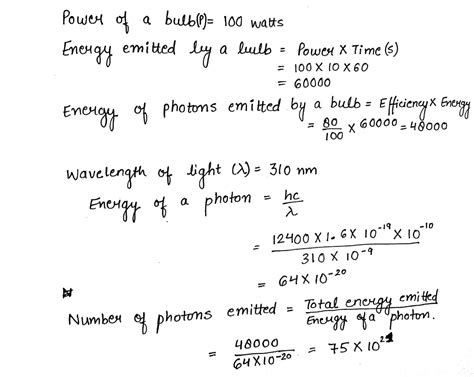 Power of a bulb(P)= 100 watts
Energy emitted by a bulb = Power X Time (s)
= 100 X 10 X 60
= 60000
Energy of photons emitted by a bulb = Efficiency X Energy
= 80/100 X 60000 = 48000
Wavelength of light (λ) = 310 nm
Energy of a photon = hc/λ
= 12400 X 1.6 X 10⁻¹⁹ X 10⁻¹⁰ / 310 X 10⁻⁹
= 64 X 10⁻²⁰
Number of photons emitted = Total energy emitted / Energy of a photon.
= 48000 / 64 X 10⁻²⁰ = 75 X 10²¹